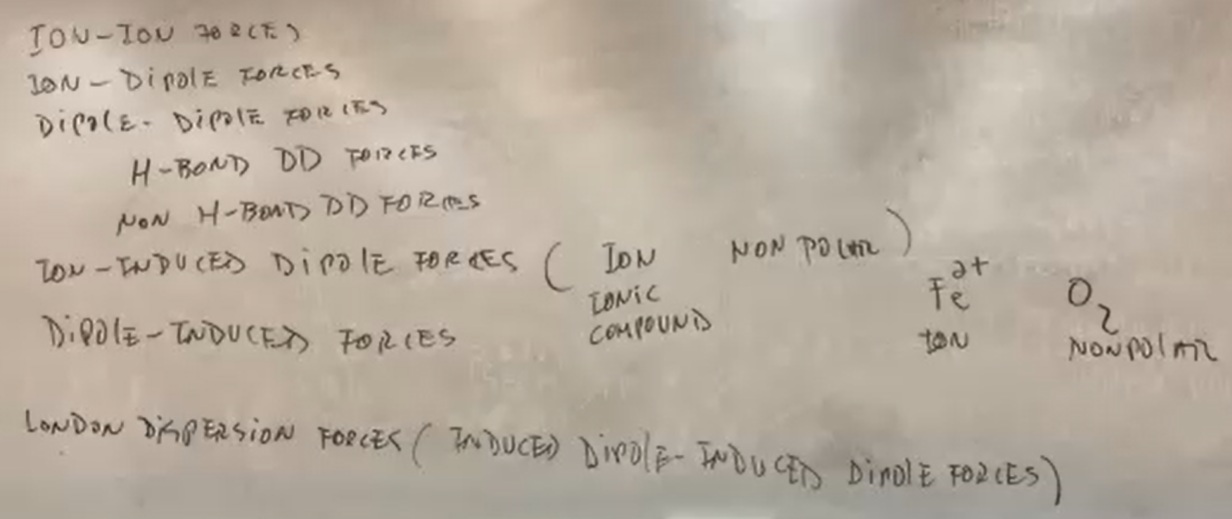 ION-ION FORCES
ION-DipolE FORCES
DipolE-DipolE FORCES
H-BOND DD FORCES
NON H-BOND DD FORCES
ION-INDUCED DipolE FORCES ( ION NON POLAR )
IONIC
COMPOUND
Fe²⁺ O₂
ION NONPOLAR
DipolE-INDUCED FORCES
LONDON DiSPERSiON FORCES ( INDUCED DipolE-INDUCED DipolE FORCES )